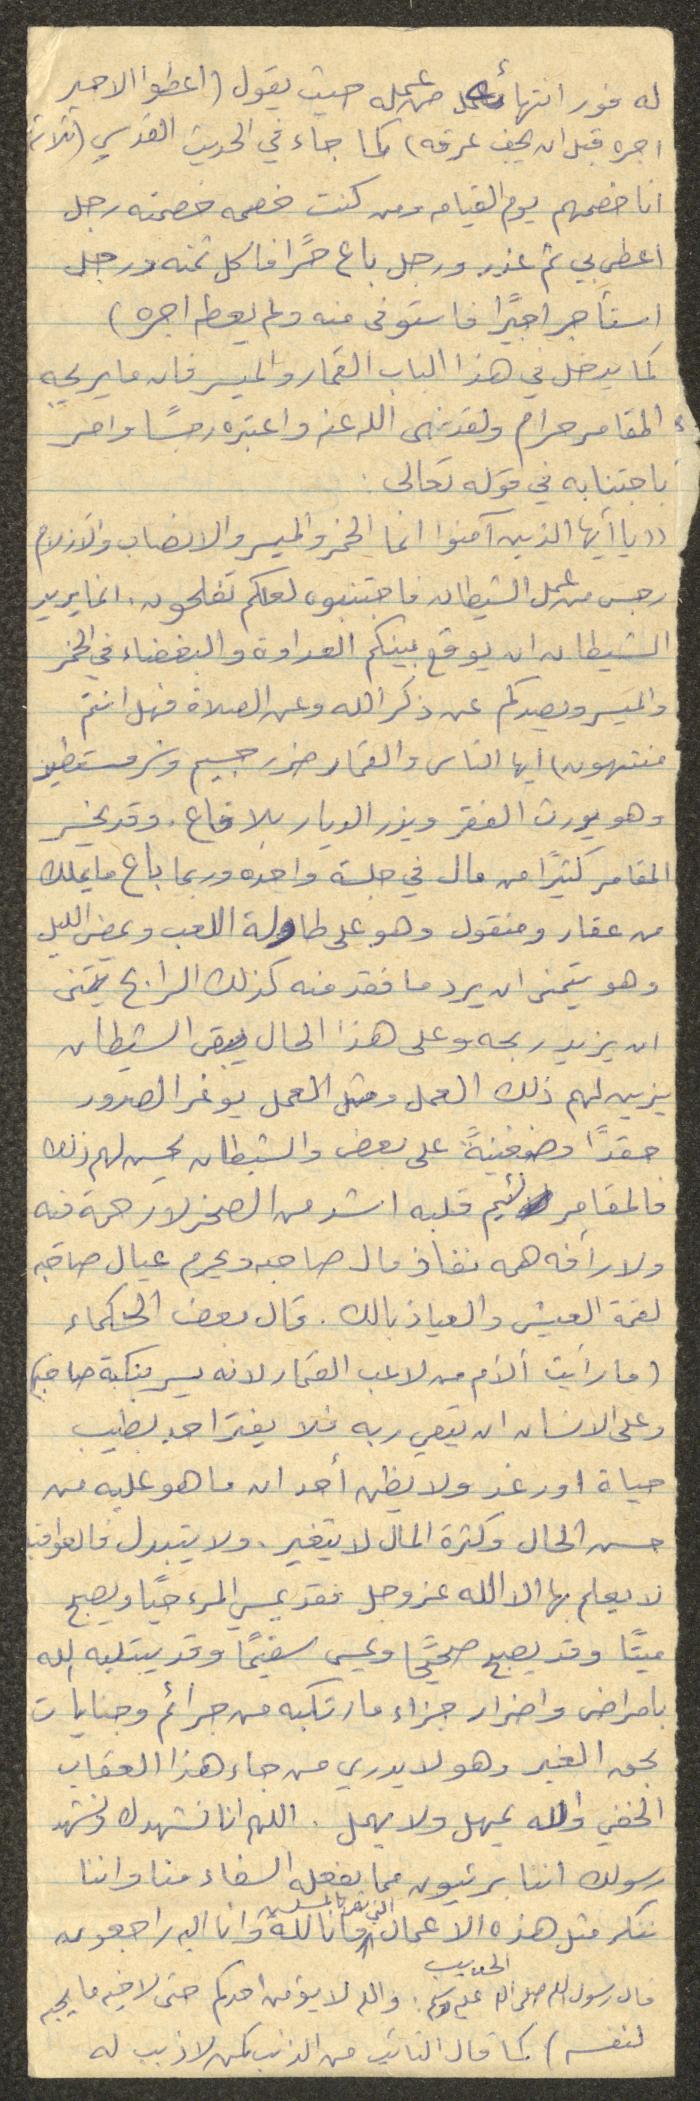 له فور انتهائه من عمله حيث يقول (اعطوا الاجير
اجره قبل ان يجف عرقه) كما جاء في الحديث القدسي (ثلاثة
انا خصمهم يوم القيامه ومن كنت خصمه خصمته رجل
اعطى بي ثم غدر ورجل باع حرًا فاكل ثمنه ورجل
استأجر اجيرًا فاستوفى منه ولم يعطه اجره)
كما يدخل في هذا الباب القمار والميسر فان ما يربحه
المقامر حرام ولقد نهى الله عنه واعتبره رجسًا وامر
باجتنابه في قوله تعالى :
((يا أيها الذين آمنوا انما الخمر والميسر والانصاب والأزلام
رجس من عمل الشيطان فاجتنبوه لعلكم تفلحون. انما يريد
الشيطان ان يوقع بينكم العداوة والبغضاء في الخمر
والميسر ويصدكم عن ذكر الله وعن الصلاة فهل انتم
منتهون) ايها الناس والقمار ضرر جسيم وشر مستطير
وهو يورث الفقر ويذر الديار بلاقاع. وقد يخسر
المقامر كثيرًا من مال في جلسة واحده وربما باع ما يملك
من عقار ومنقول وهو على طاولة اللعب ويمضي الليل
وهو يتمنى ان يرد ما فقد منه كذلك الرابح يتمنى
ان يزيد ربحه وعلى هذا الحال يبقى الشيطان
يزين لهم ذلك العمل ومثل العمل يوغر الصدور
حقدًا وضغينةً على بعض والشيطان يحسن لهم ذلك
فالمقامر لئيم قلبه اشد من الصخر لا رحمة فيه
ولا رأفه همه نفاذ مال صاحبه ويحرم عيال صاحبه
لقمة العيش والعياذ بالله. قال بعض الحكماء
(ما رأيت ألأم من لاعب القمار لانه يسر بنكبة صاحبه)
وعلى الانسان ان يتقي ربه فلا يغتر احد بطيب
حياة او رغد ولا يظن أحد ان ما هو عليه من
حسن الحال وكثرة المال لا يتغير. ولا يتبدل فالعواقب
لا يعلم بها الا الله عز وجل فقد يمسي المرء حيًا ويصبح
ميتًا وقد يصبح صحيحًا ويمسي سقيمًا وقد يبتليه الله
بامراض واضرار جزاء ما ارتكبه من جرائم وجنايات
بحق الغير وهو لا يدري من جاء هذا العقاب
الخفي والله يمهل ولا يهمل. اللهم انا نشهدك ونشهد
رسولك اننا بريئون مما يفعله السفهاء منا واننا
ننكر مثل هذه الاعمال التي تضر بالمسلمين وانا لله وانا اليه راجعون
الحديث
قال رسول الله صلى الله عليه وسلم : والله لا يؤمن احدكم حتى لاخيه ما يحبه
لنفسه) كما قال التائب من الذنب كمن لا ذنب له